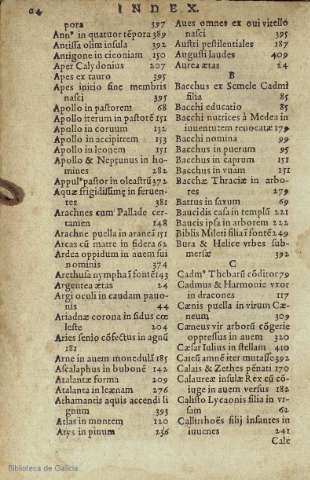 a4 INDEX.
pora 397
Annꝰ in quatuor tẽpora 389
Antissa olim insula 392
Antigone in ciconiam 150
Aper Calydonius 207
Apes ex tauro 395
Apes initio sine membris
nasci 395
Apollo in pastorem 68
Apollo iterum in pastorẽ 151
Apollo in coruum 132
Apollo in accipitrem 153
Apollo in leonem 151
Apollo & Neptunus in ho-
mines 282
Appulꝰ pastor in oleastrũ 372
Aquæ frigidissimę in feruen-
tes 381
Arachnes cum Pallade cer-
tamen 148
Arachne puella in araneã 151
Arcas cũ matre in sidera 62
Ardea oppidum in auem sui
nominis 374
Arethusa nympha ĩ fontẽ 143
Argentea ætas 24
Argi oculi in caudam pauo-
nis 44
Ariadnæ corona in sidus cœ
leste 204
Aries senio cõfectus in agnũ
181
Arne in auem monedulã 185
Ascalaphus in bubonẽ 142
Atalantæ formæ 209
Atalanta in leænam 276
Athamantis aquis accendi li
gnum 393
Atlas in montem 120
Atys in pinum 236
Aues omnes ex oui vitello
nasci 395
Austri pestilentiales 187
Augusti laudes 409
Aurea ætas 24
B
Bacchus ex Semele Cadmi
filia 85
Bacchi educatio 85
Bacchi nutrices à Medea in
iuuentutem reuocatæ 179
Bacchi nomina 99
Bacchus in puerum 95
Bacchus in caprum 151
Bacchus in vuam 151
Bacchæ Thraciæ in arbo-
res 279
Battus in saxum 69
Baucidis casa in templũ 221
Baucis ipsa in arborem 222
Biblis Mileti filia ĩ fontẽ 249
Bura & Helice vrbes sub-
mersæ 392
C
Cadmꝰ Thebarũ cõditor 79
Cadmus & Harmonie vxor
in dracones 117
Cænis puella in virum Cæ-
neum 309
Cæneus vir arborũ cõgerie
oppressus in auem 320
Cæsar Iulius in stellam 410
Calais & Zethes pẽnati 170
Calaureæ insulæ Rex cũ cõ-
iuge in auem versus 182
Calisto Lycaonis filia in vr-
sam 62
Callirrhoës filij infantes in
iuuenes 241
Cale
Biblioteca de Galicia